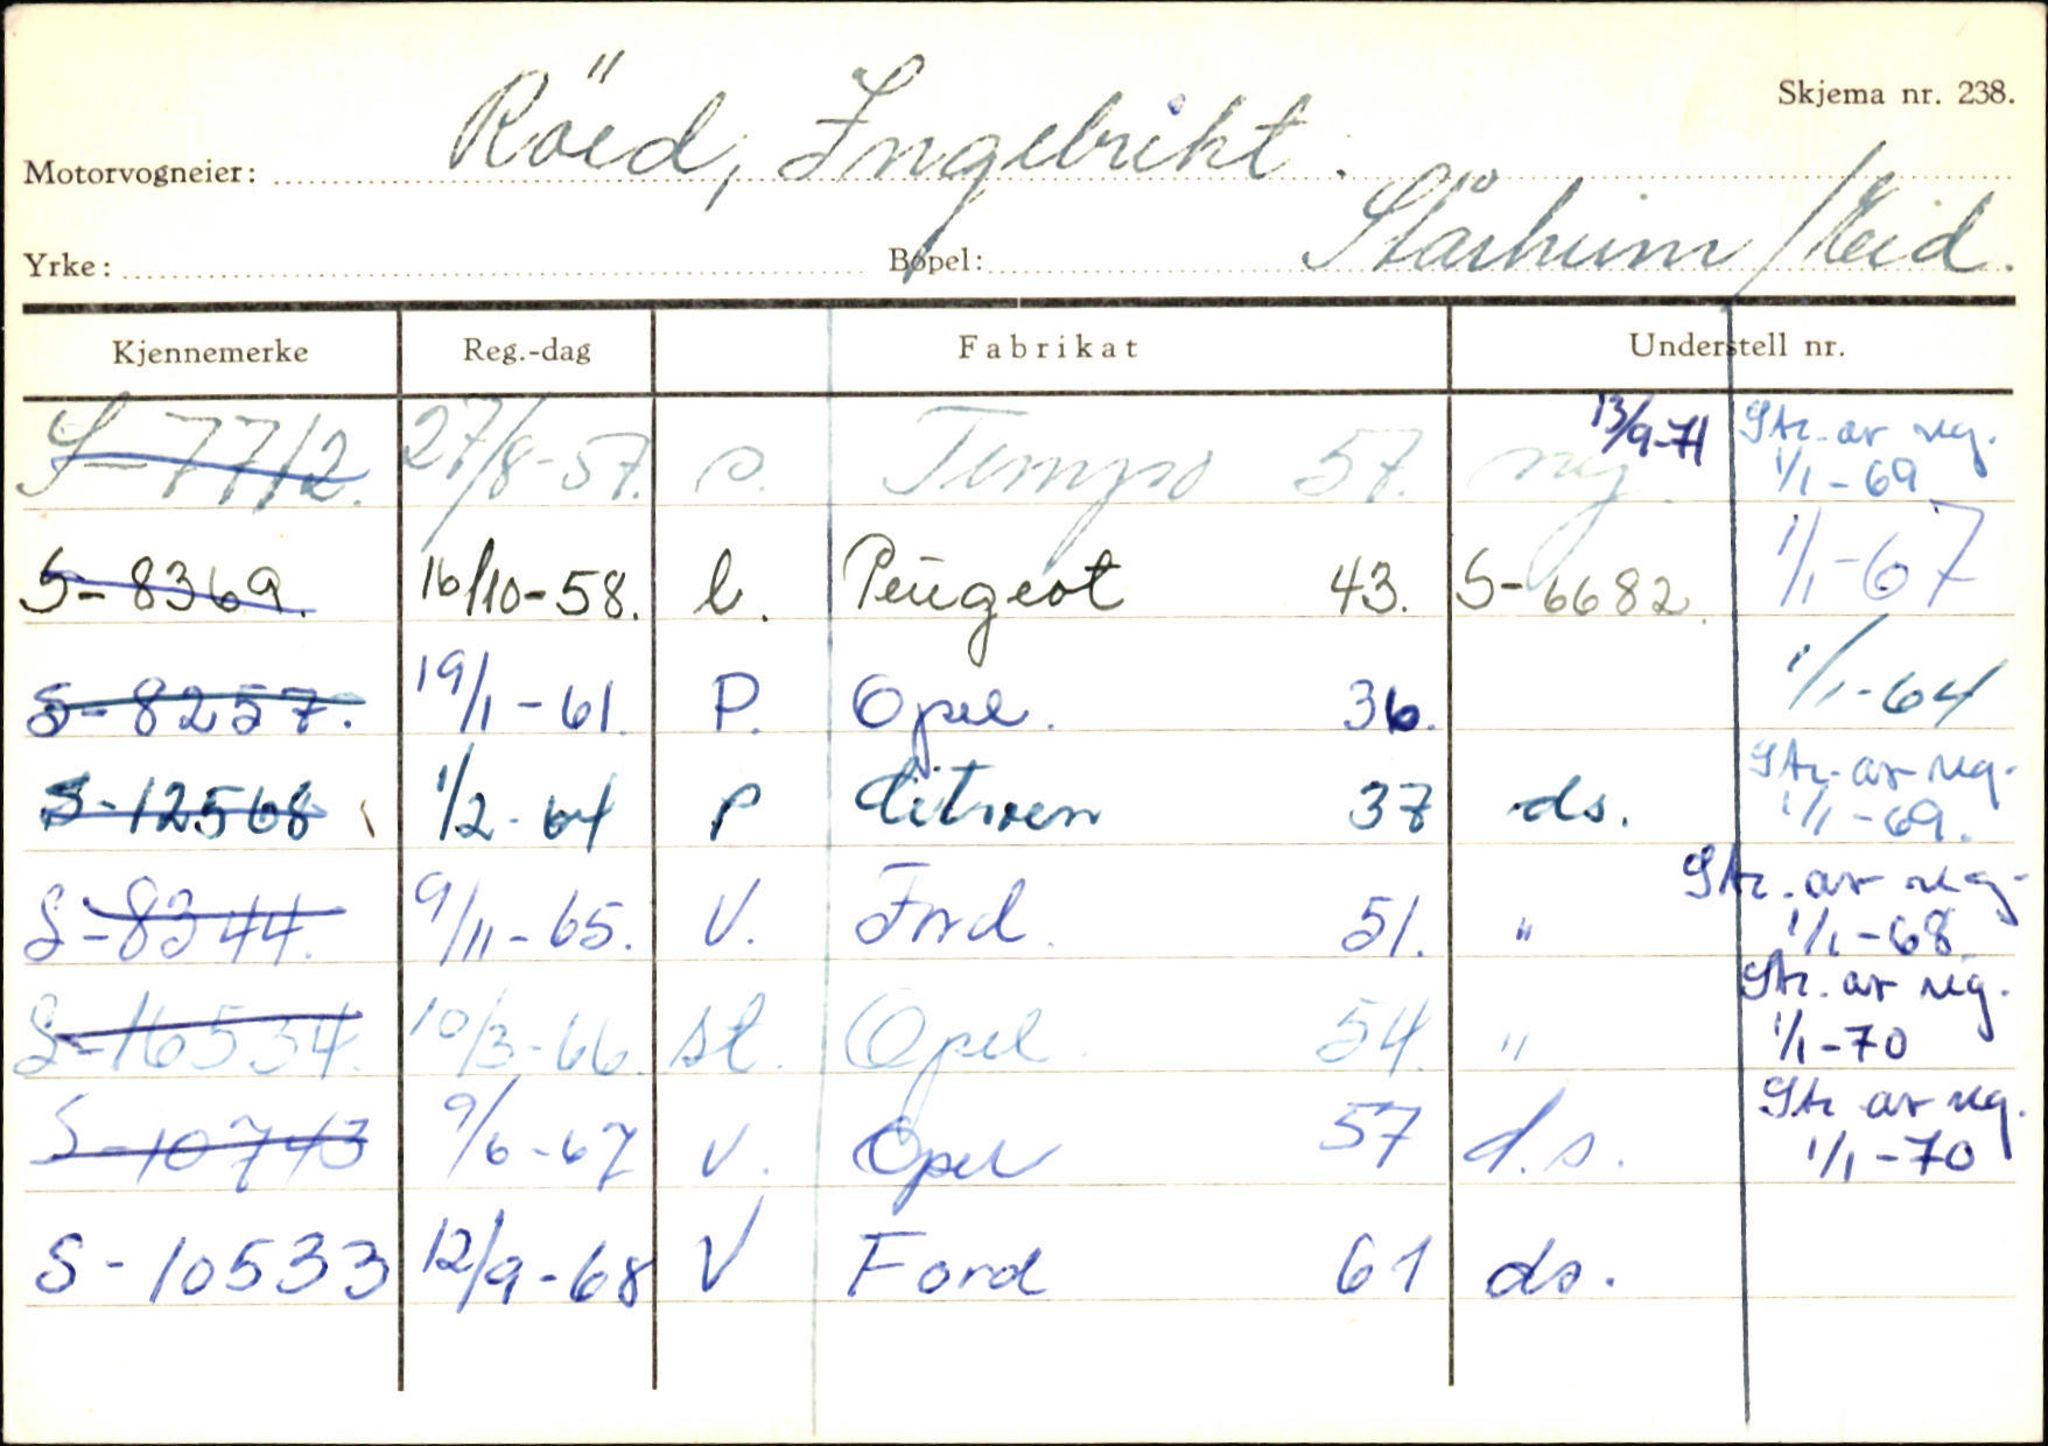 Skjema nr. 238.
Motorvogneier: Röed, Ingebrikt.
Yrke: Bopel: Stårheim / Eid.
Kjennemerke Reg.-dag Fabrikat Understell nr.
S-7712. 27/8-57. c. Tempo 57. ny. 13/9-71 Str. av reg. 1/1-69
S-8369. 16/10-58. l. Peugeot 43. S-6682. 1/1-67
S-8257. 19/1-61. P. Opel. 36. 1/1-64
S-12568 1/2-64 P Citroen 37 ds. Str. av reg. 1/1-69.
S-8344. 9/11-65. V. Ford. 51. " Str. av reg. 1/1-68
S-16534. 10/3-66. st. Opel. 54. " Str. av reg. 1/1-70
S-10743 9/6-67 v. Opel 57 d.s. Str av reg. 1/1-70
S-10533 12/9-68 V Ford 61 ds.